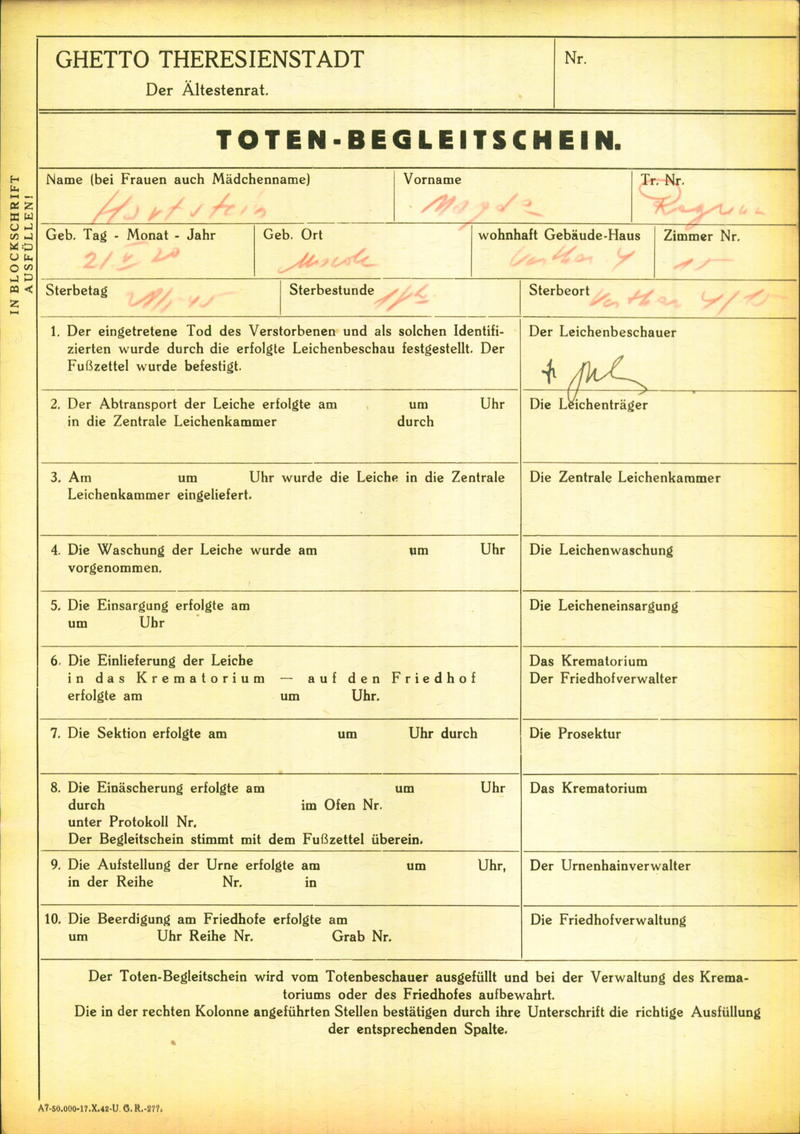 GHETTO THERESIENSTADT
Der Ältestenrat.
Nr.
TOTEN-BEGLEITSCHEIN.
IN BLOCKSCHRIFT
AUSFÜLLEN!
Name (bei Frauen auch Mädchenname)
Vorname
Tr.-Nr.
Magda
Geb. Tag - Monat - Jahr
Geb. Ort
wohnhaft Gebäude-Haus
Zimmer Nr.
Sterbetag
Sterbestunde
Sterbeort
1. Der eingetretene Tod des Verstorbenen und als solchen Identifi-
zierten wurde durch die erfolgte Leichenbeschau festgestellt. Der
Fußzettel wurde befestigt.
Der Leichenbeschauer
2. Der Abtransport der Leiche erfolgte am um Uhr
in die Zentrale Leichenkammer durch
Die Leichenträger
3. Am um Uhr wurde die Leiche in die Zentrale
Leichenkammer eingeliefert.
Die Zentrale Leichenkammer
4. Die Waschung der Leiche wurde am um Uhr
vorgenommen.
Die Leichenwaschung
5. Die Einsargung erfolgte am
um Uhr
Die Leicheneinsargung
6. Die Einlieferung der Leiche
in das Krematorium — auf den Friedhof
erfolgte am um Uhr.
Das Krematorium
Der Friedhofverwalter
7. Die Sektion erfolgte am um Uhr durch
Die Prosektur
8. Die Einäscherung erfolgte am um Uhr
durch im Ofen Nr.
unter Protokoll Nr.
Der Begleitschein stimmt mit dem Fußzettel überein.
Das Krematorium
9. Die Aufstellung der Urne erfolgte am um Uhr,
in der Reihe Nr. in
Der Urnenhainverwalter
10. Die Beerdigung am Friedhofe erfolgte am
um Uhr Reihe Nr. Grab Nr.
Die Friedhofverwaltung
Der Toten-Begleitschein wird vom Totenbeschauer ausgefüllt und bei der Verwaltung des Krema-
toriums oder des Friedhofes aufbewahrt.
Die in der rechten Kolonne angeführten Stellen bestätigen durch ihre Unterschrift die richtige Ausfüllung
der entsprechenden Spalte.
A7-50.000-17.X.42-U. G. R.-277.